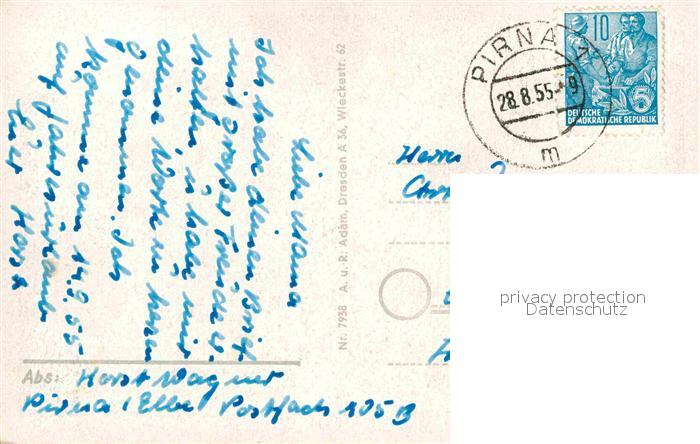 Liebe Mama
Ich habe deinen Brief
mit großer Freude er-
halten u habe mir
deine Worte zu herzen
genommen. Ich
komme am 14.9.55
auf Jahresurlaub
Euer Horst
Abs: Horst Wagner
Pirna / Elbe Postfach 105 B
Nr. 7938 A. u. R. Adam, Dresden A 36, Wieckestr. 62
PIRNA
28.8.55.-9
m
10
5
DEUTSCHE
DEMOKRATISCHE REPUBLIK
Herrn
privacy protection
Datenschutz